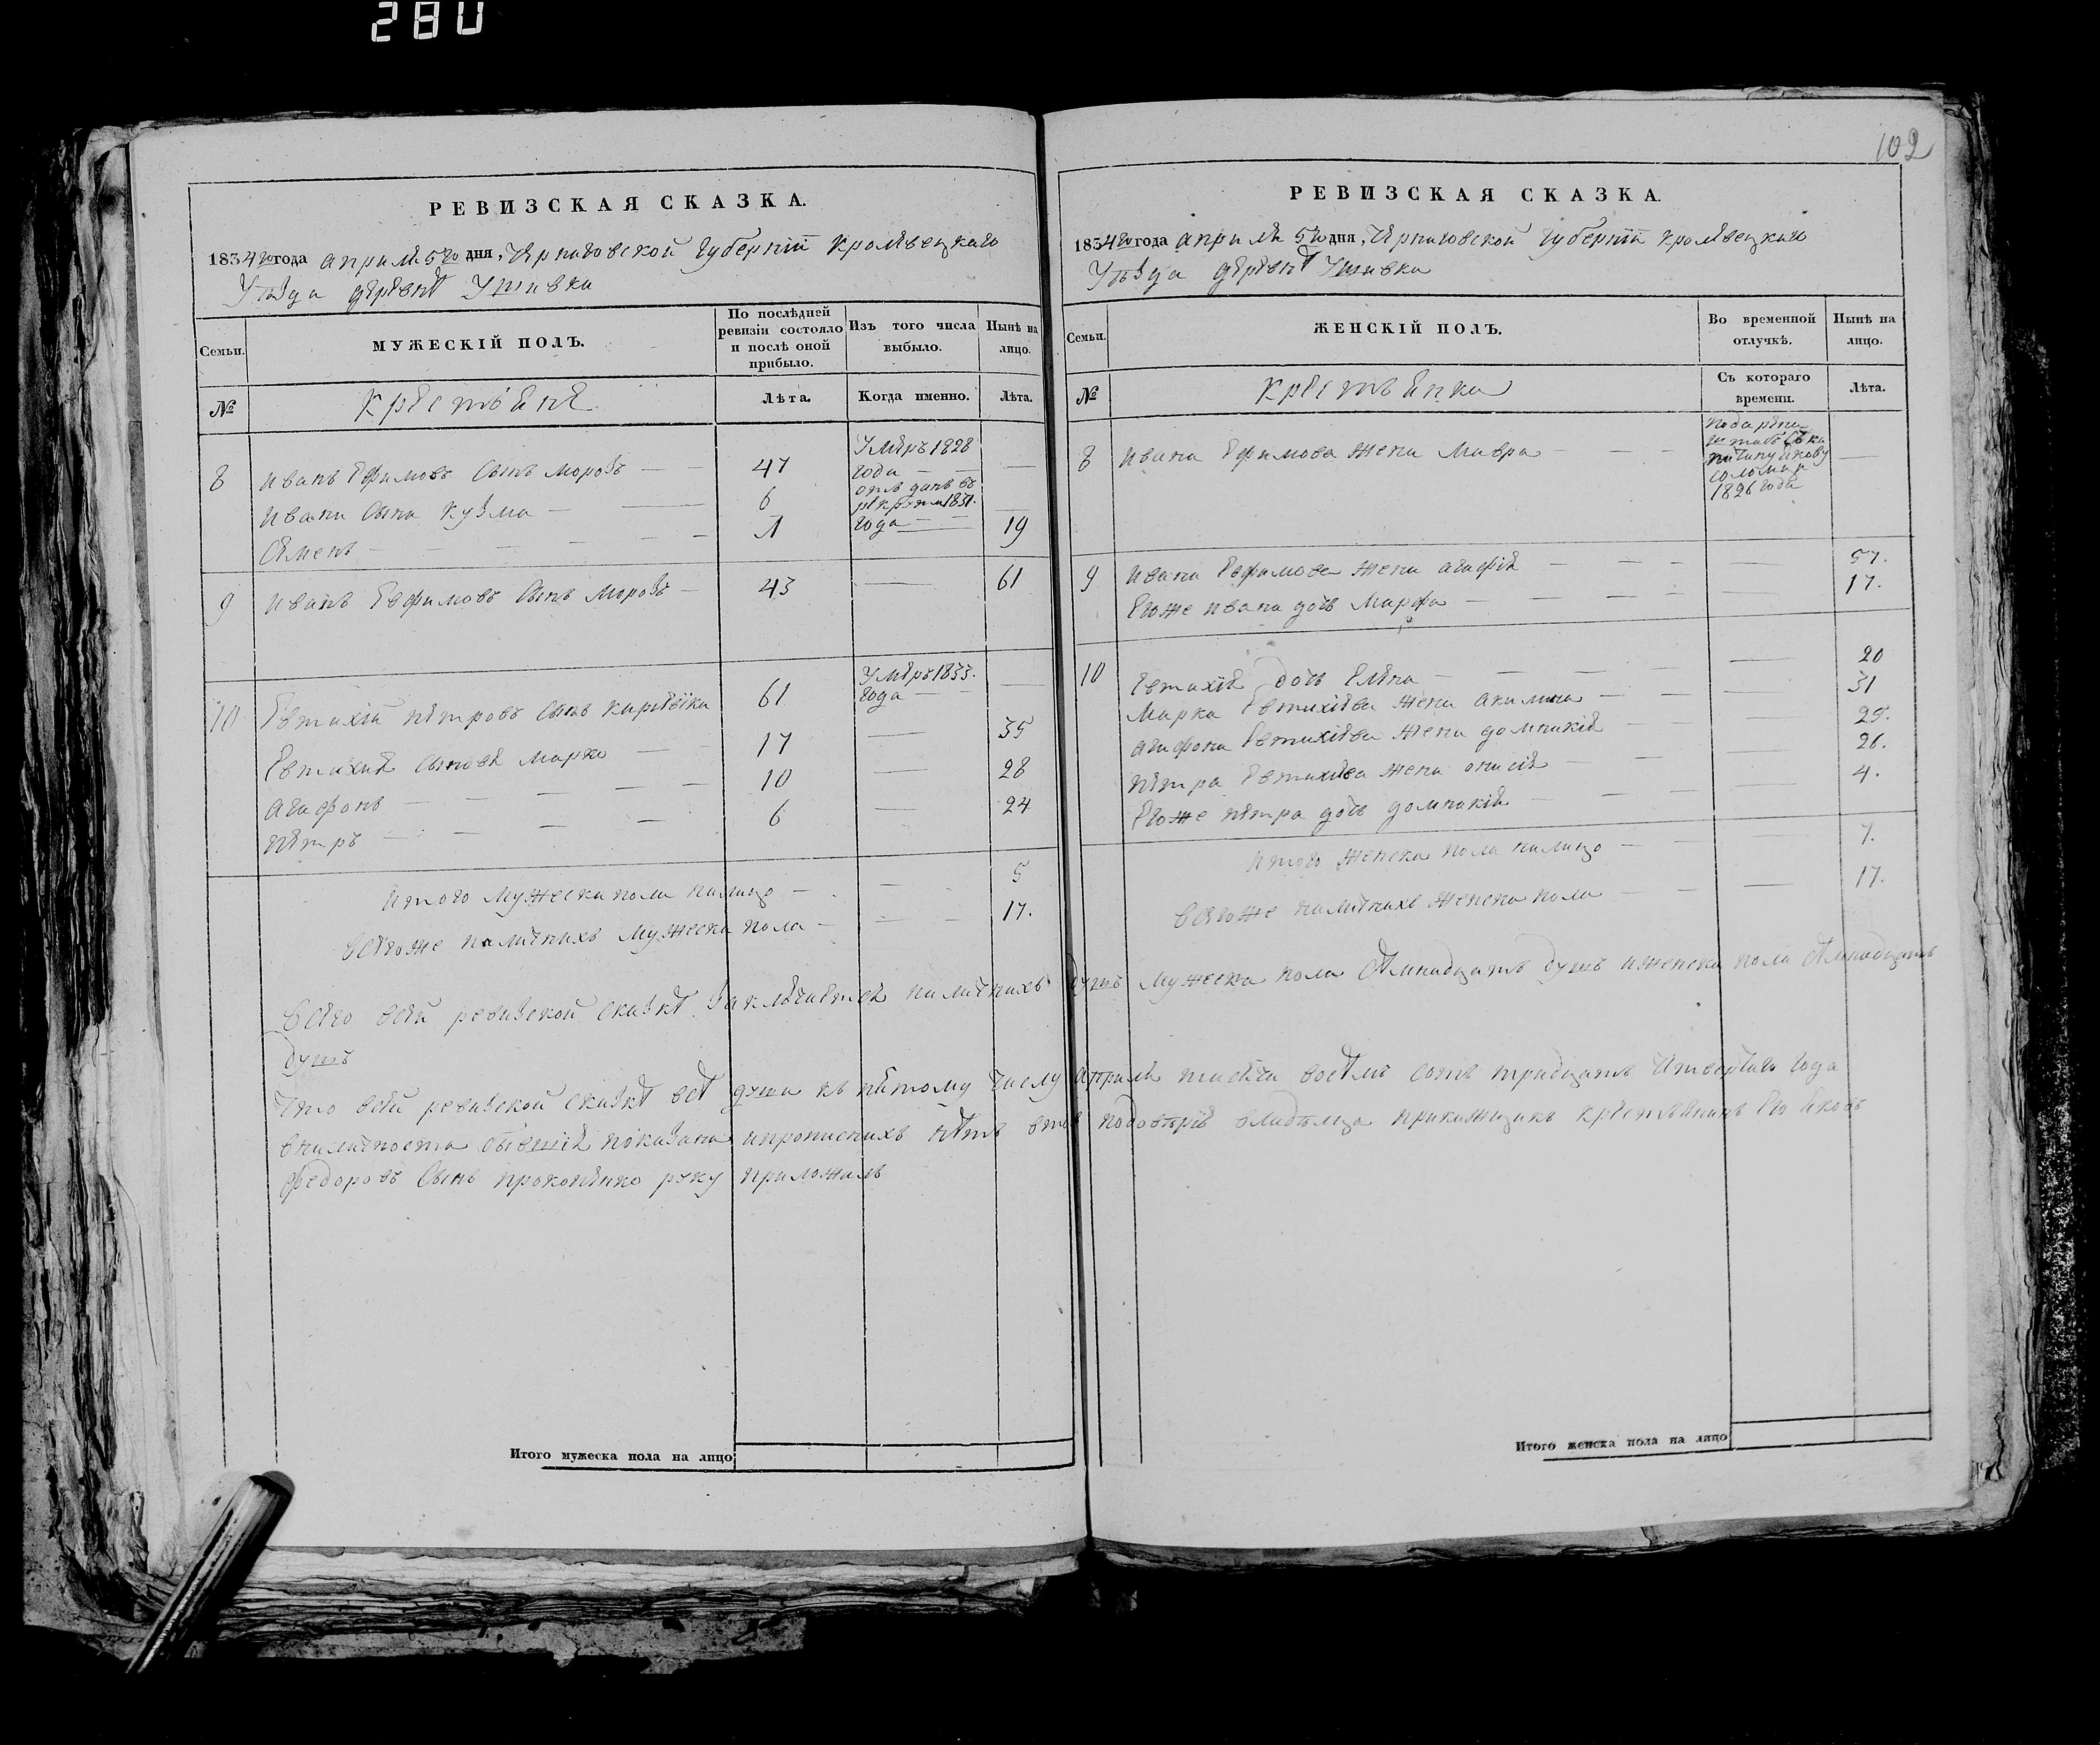 280
РЕВИЗСКАЯ СКАЗКА.
1834го года апреля 5го дня, Черниговской Губернїи Кролевецкаго
Уезда деревне Ушивка
Семьи. МУЖЕСКІЙ ПОЛЪ. По послѣдней ревизіи состояло и послѣ оной прибыло. Изъ того числа выбыло. Нынѣ на лицо.
№ Крестьяне Лѣта. Когда именно. Лѣта.
8 Иванъ Ефимовъ Сынъ Морозъ — 47 Умеръ 1828 года —
Ивана Сынъ Кузма — 6 отъданъ въ рекруты 1831. года —
Семенъ — 1 19
9 Иванъ Евфимовъ Сынъ Морозъ — 43 — 61
10 Евтихій Петровъ Сынъ 61 Умеръ 1833. года —
Евтихия Сыновя Марко — 17 — 35
Агафонъ — 10 — 28
Петръ — 6 — 24
Итого мужеска пола налицо — 5
Всегоже наличнихъ мужеска пола — 17.
Итого мужеска пола на лицо
102
РЕВИЗСКАЯ СКАЗКА.
1834го года апреля 5го дня, Черниговской Губернїи Кролевецкаго
Уезда деревне Ушивка
Семьи. ЖЕНСКІЙ ПОЛЪ. Во временной отлучкѣ. Нынѣ на лицо.
№ Крестьянки Съ котораго времени. Лѣта.
8 Ивана Ефимова жена Мавра — 1826 года —
9 Ивана Евфимова жена Агафія — 57.
Егоже Ивана дочь Марфа — 17.
10 Евтихія дочь Елена — 20
Марка Евтихіева жена Акилина — 31
Агафона Евтихіева жена Домникія — 25.
Петра Евтихіева жена Онисія — 26.
Егоже Петра дочь Домникія — 4.
Итого женска пола налицо — 7.
Всегоже наличнихъ женска пола — 17.
Итого женска пола на лицо
Всего всей ревизской сказке заключается наличнихъ душъ мужеска пола семнадцать душъ иженска пола семнадцать
душъ
Что всей ревизской сказке все души къ пятому числу апреля тисяча восемъ сотъ тридцать четвертаго года
вналичности бывшія показани ипрописнихъ нетъ втом поодоверію владелца прикащикъ крестьянинъ Его Яковъ
Федоровъ Сынъ Прокопенко руку приложилъ